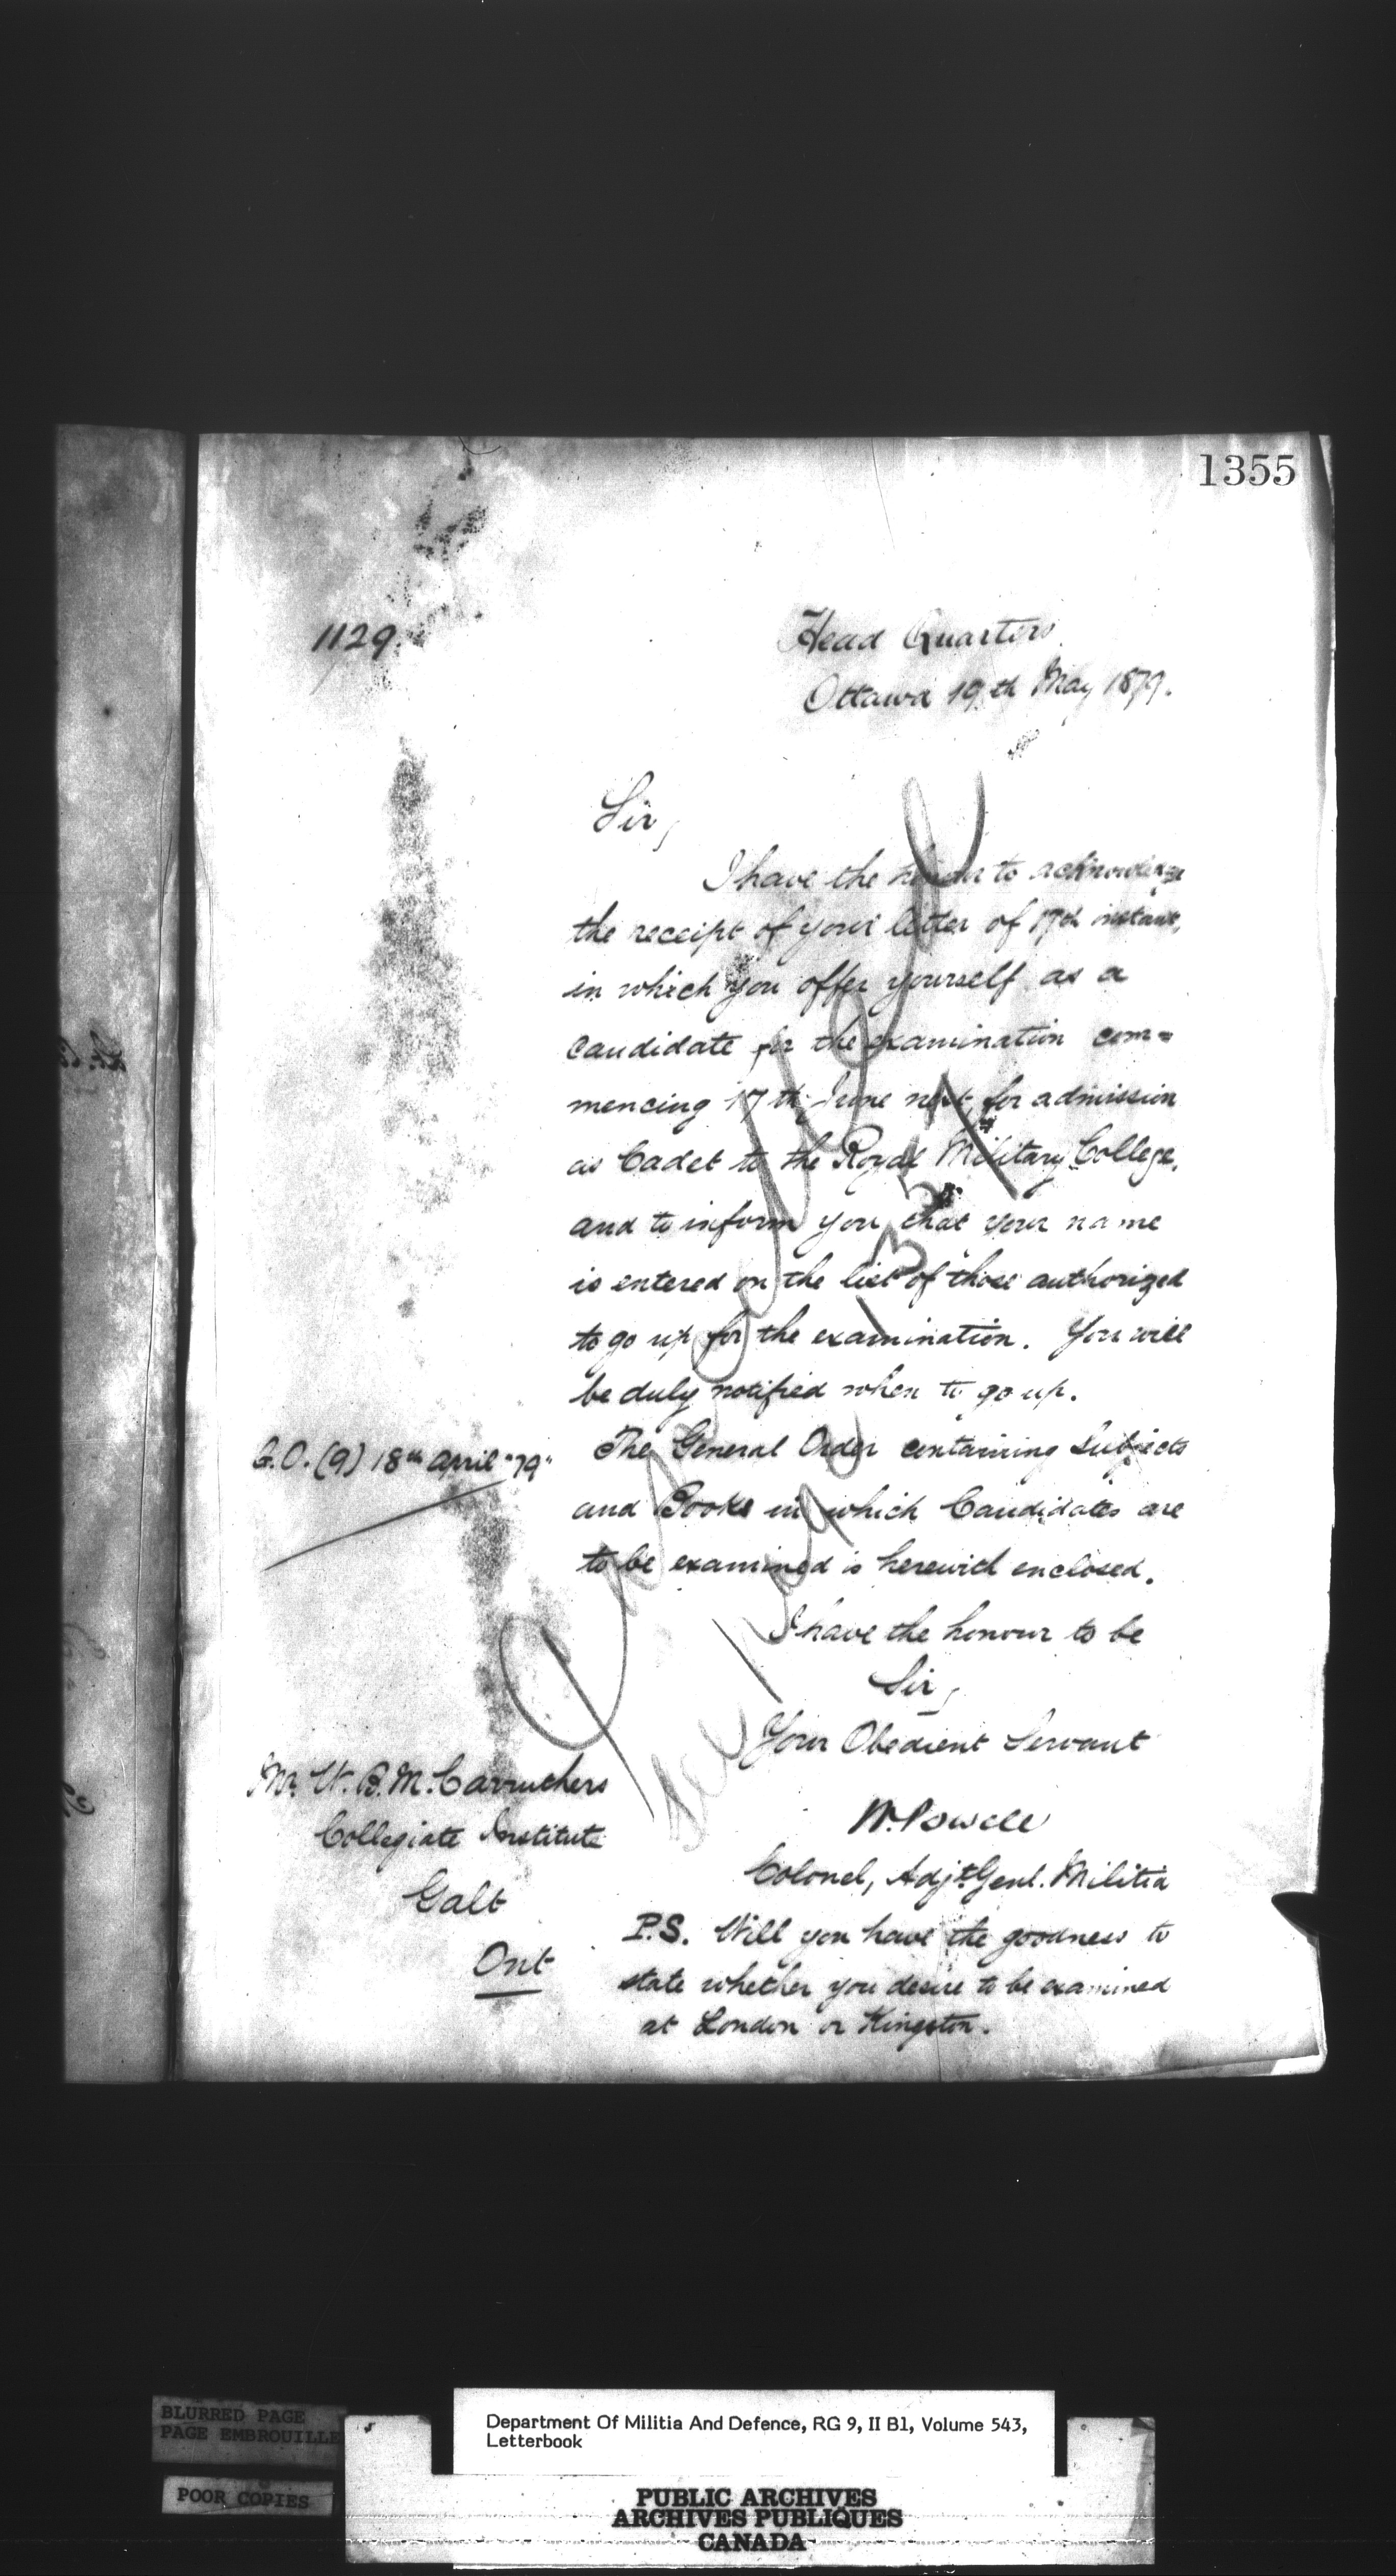 1355
1129.
Head Quarters
Ottawa 19th May 1879.
Sir,
I have the honor to acknowledge
the receipt of your letter of 17th instant,
in which you offer yourself as a
Candidate for the examination com=
mencing 17th June next, for admission
as Cadet to the Royal Military College,
and to inform you that your name
is entered on the list of those authorized
to go up for the examination. You will
be duly notified when to go up.
G.O. (9) 18th April "79"
The General Order containing Subjects
and Books in which Candidates are
to be examined is herewith enclosed.
I have the honour to be
Sir,
Your Obedient Servant
W. Powell
Colonel, Adjt. Genl. Militia
Mr. W. B. M. Carruthers
Collegiate Institute
Galt
Ont
P.S. Will you have the goodness to
state whether you desire to be examined
at London or Kingston.
BLURRED PAGE
PAGE EMBROUILLE
POOR COPIES
Department Of Militia And Defence, RG 9, II B1, Volume 543,
Letterbook
PUBLIC ARCHIVES
ARCHIVES PUBLIQUES
CANADA